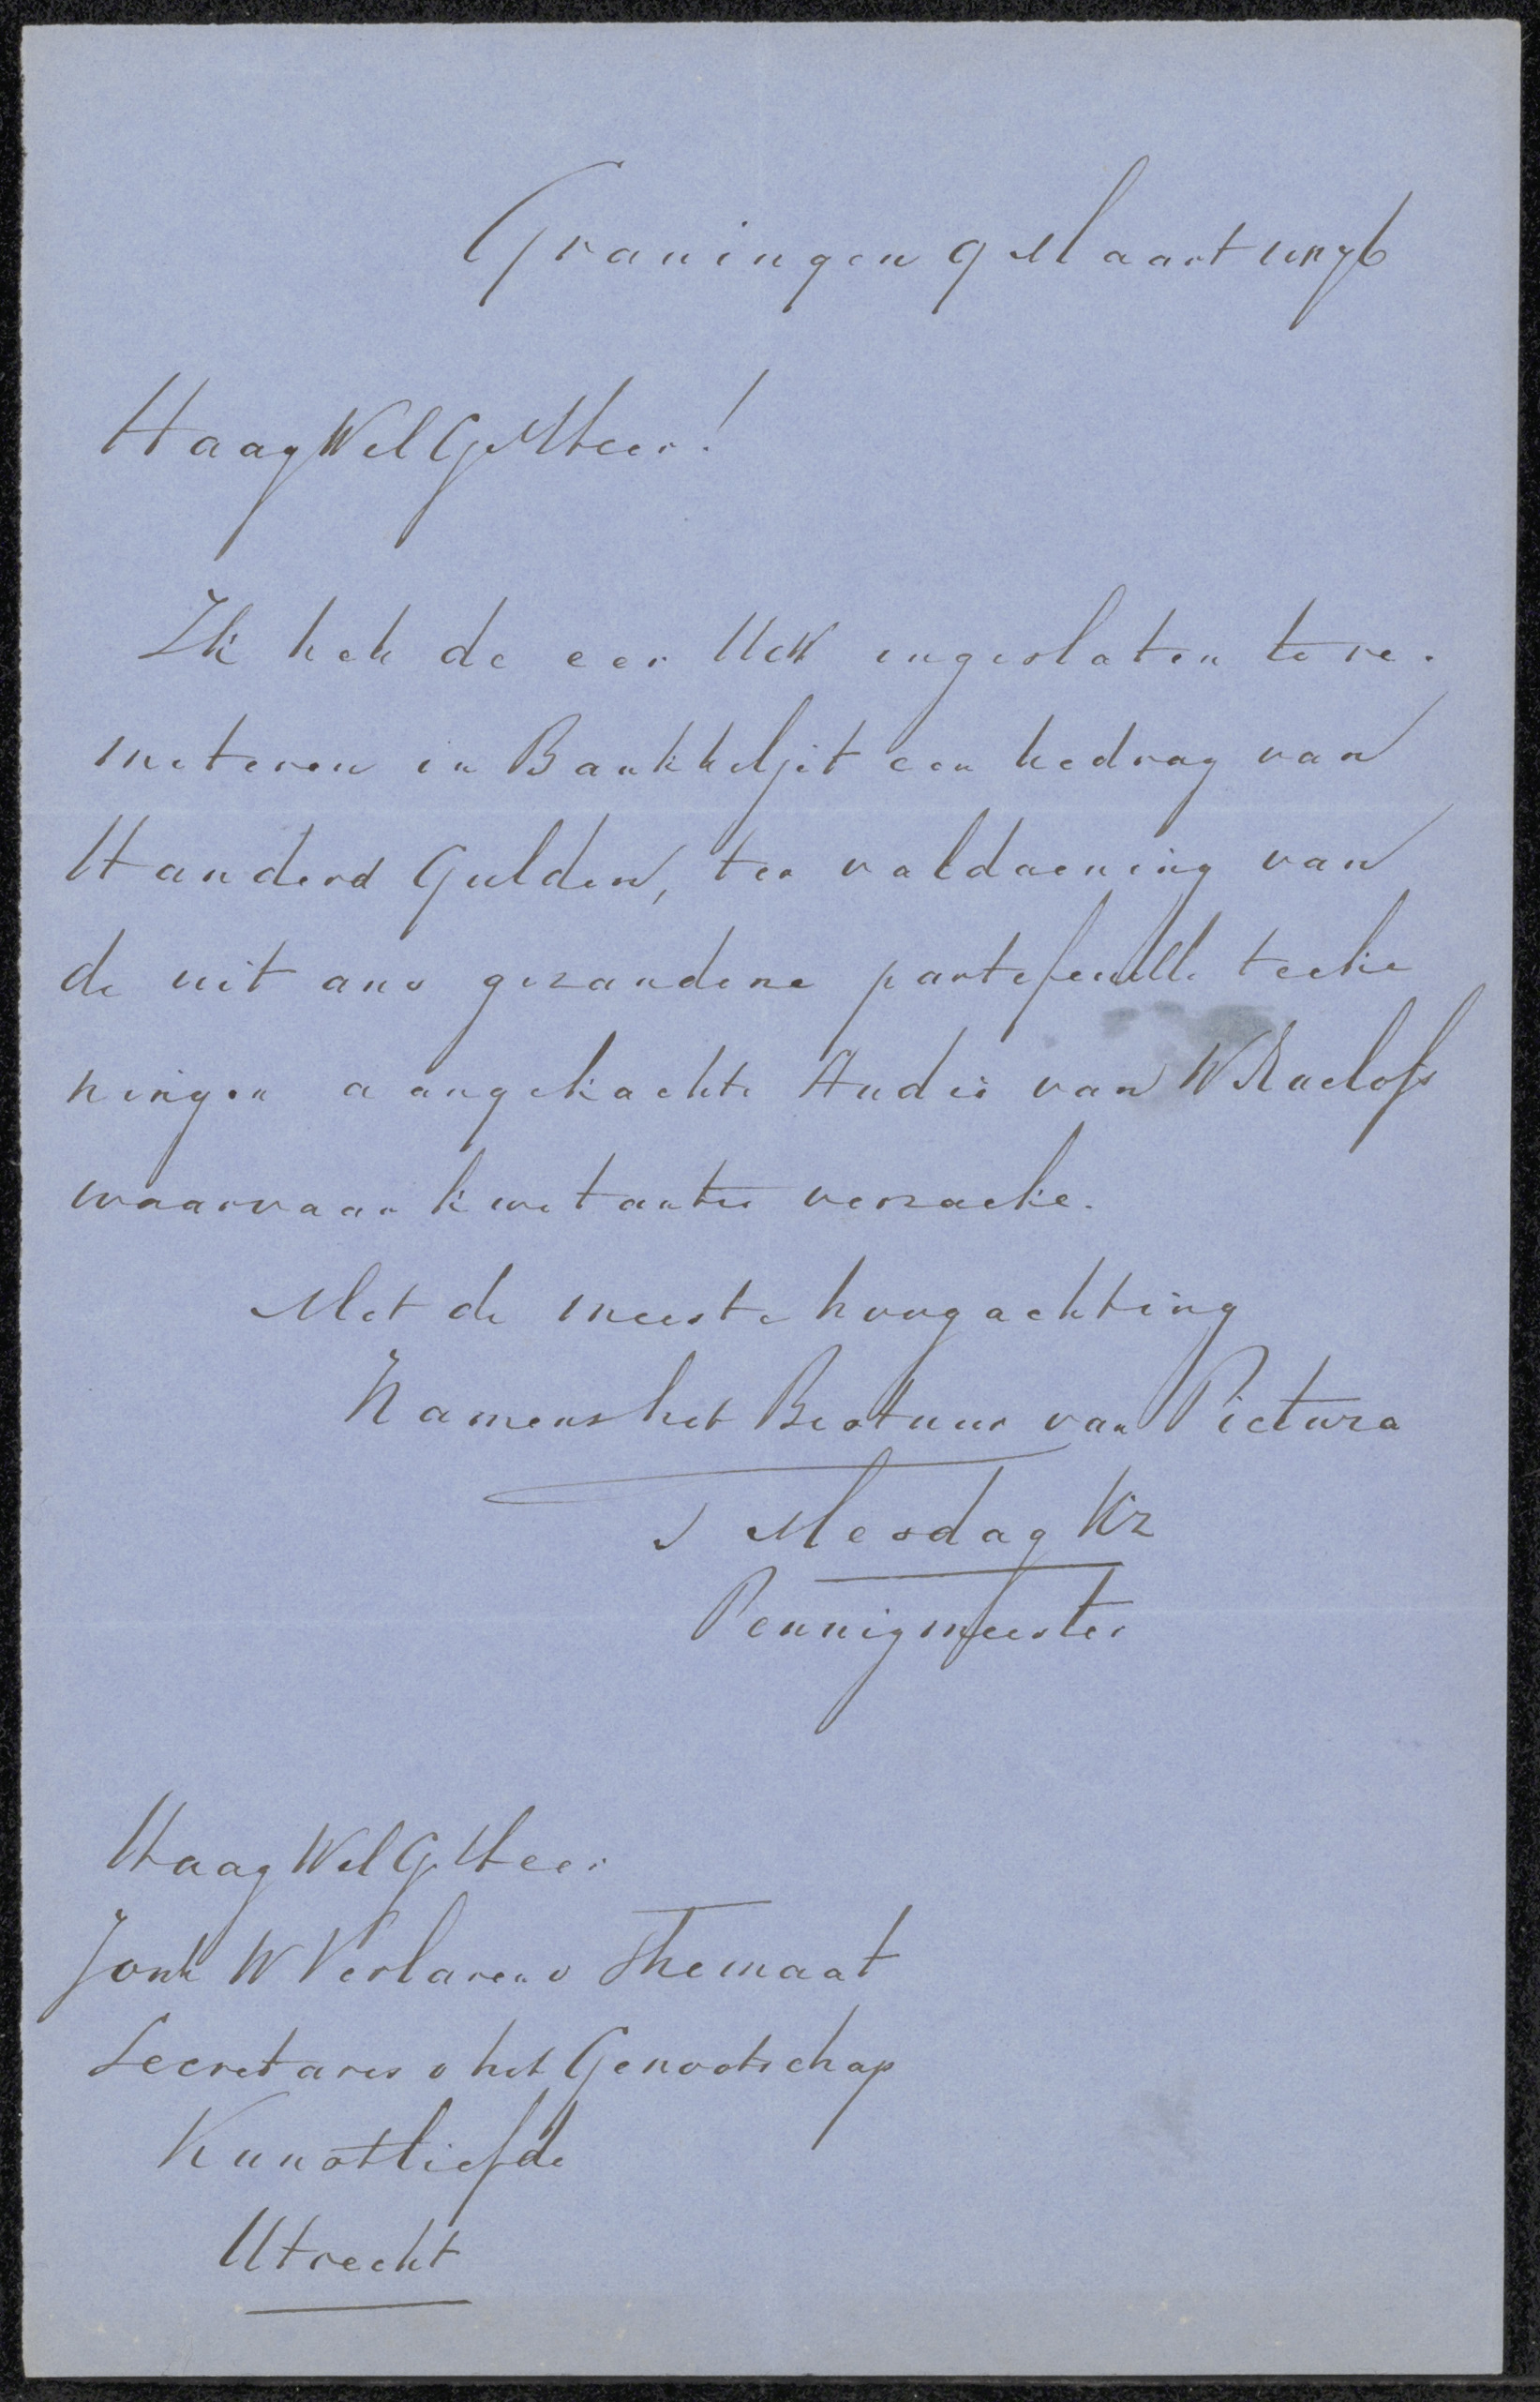 Groningen 9 Maart 1876
Hoog Wel G Heer!
Ik heb de eer UEW ingesloten te re-
miteren in Bankbiljet een bedrag van
Honderd Gulden, ter voldoening van
de uit ons gezondene portefeuille teeke
ningen aangekochte Studie van W Roelofs
waarvaan kwitantie verzoeke.
Met de meeste hoogachting
Namens het Bestuur van Pictura
Mesdag Kz
Pennigmeester
Hoog Wel G Heer
Jonk W Verloren v Themaat
Secretaris v het Genootschap
Kunstliefde
Utrecht